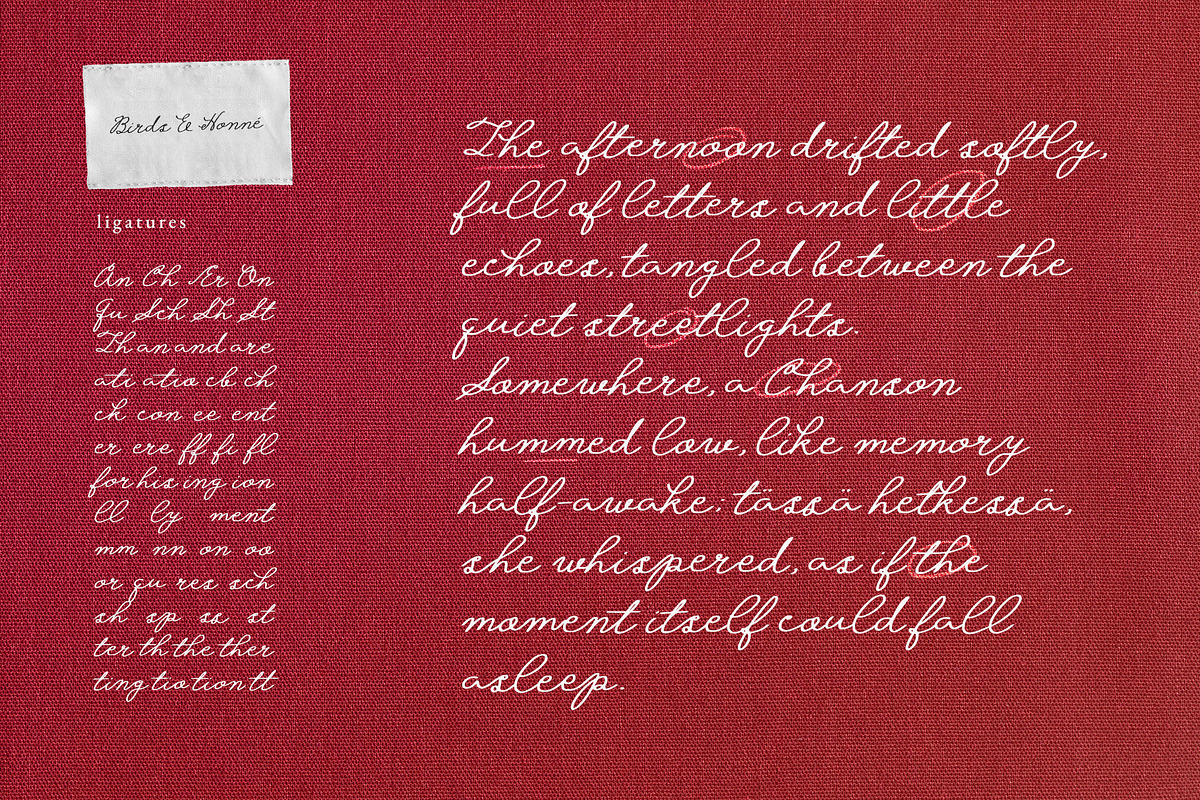 Birds & Honné
ligatures
An Ch Er On
Qu Sch Sh St
Th an and are
ati atio cb ch
ck con ee ent
er ere ff fi fl
for his ing ion
ll ly ment
mm nn on oo
or qu res sch
sh sp ss st
ter th the ther
ting tio tion tt
The afternoon drifted softly,
full of letters and little
echoes, tangled between the
quiet streetlights.
Somewhere, a Chanson
hummed low, like memory
half-awake: tässä hetkessä,
she whispered, as if the
moment itself could fall
asleep.